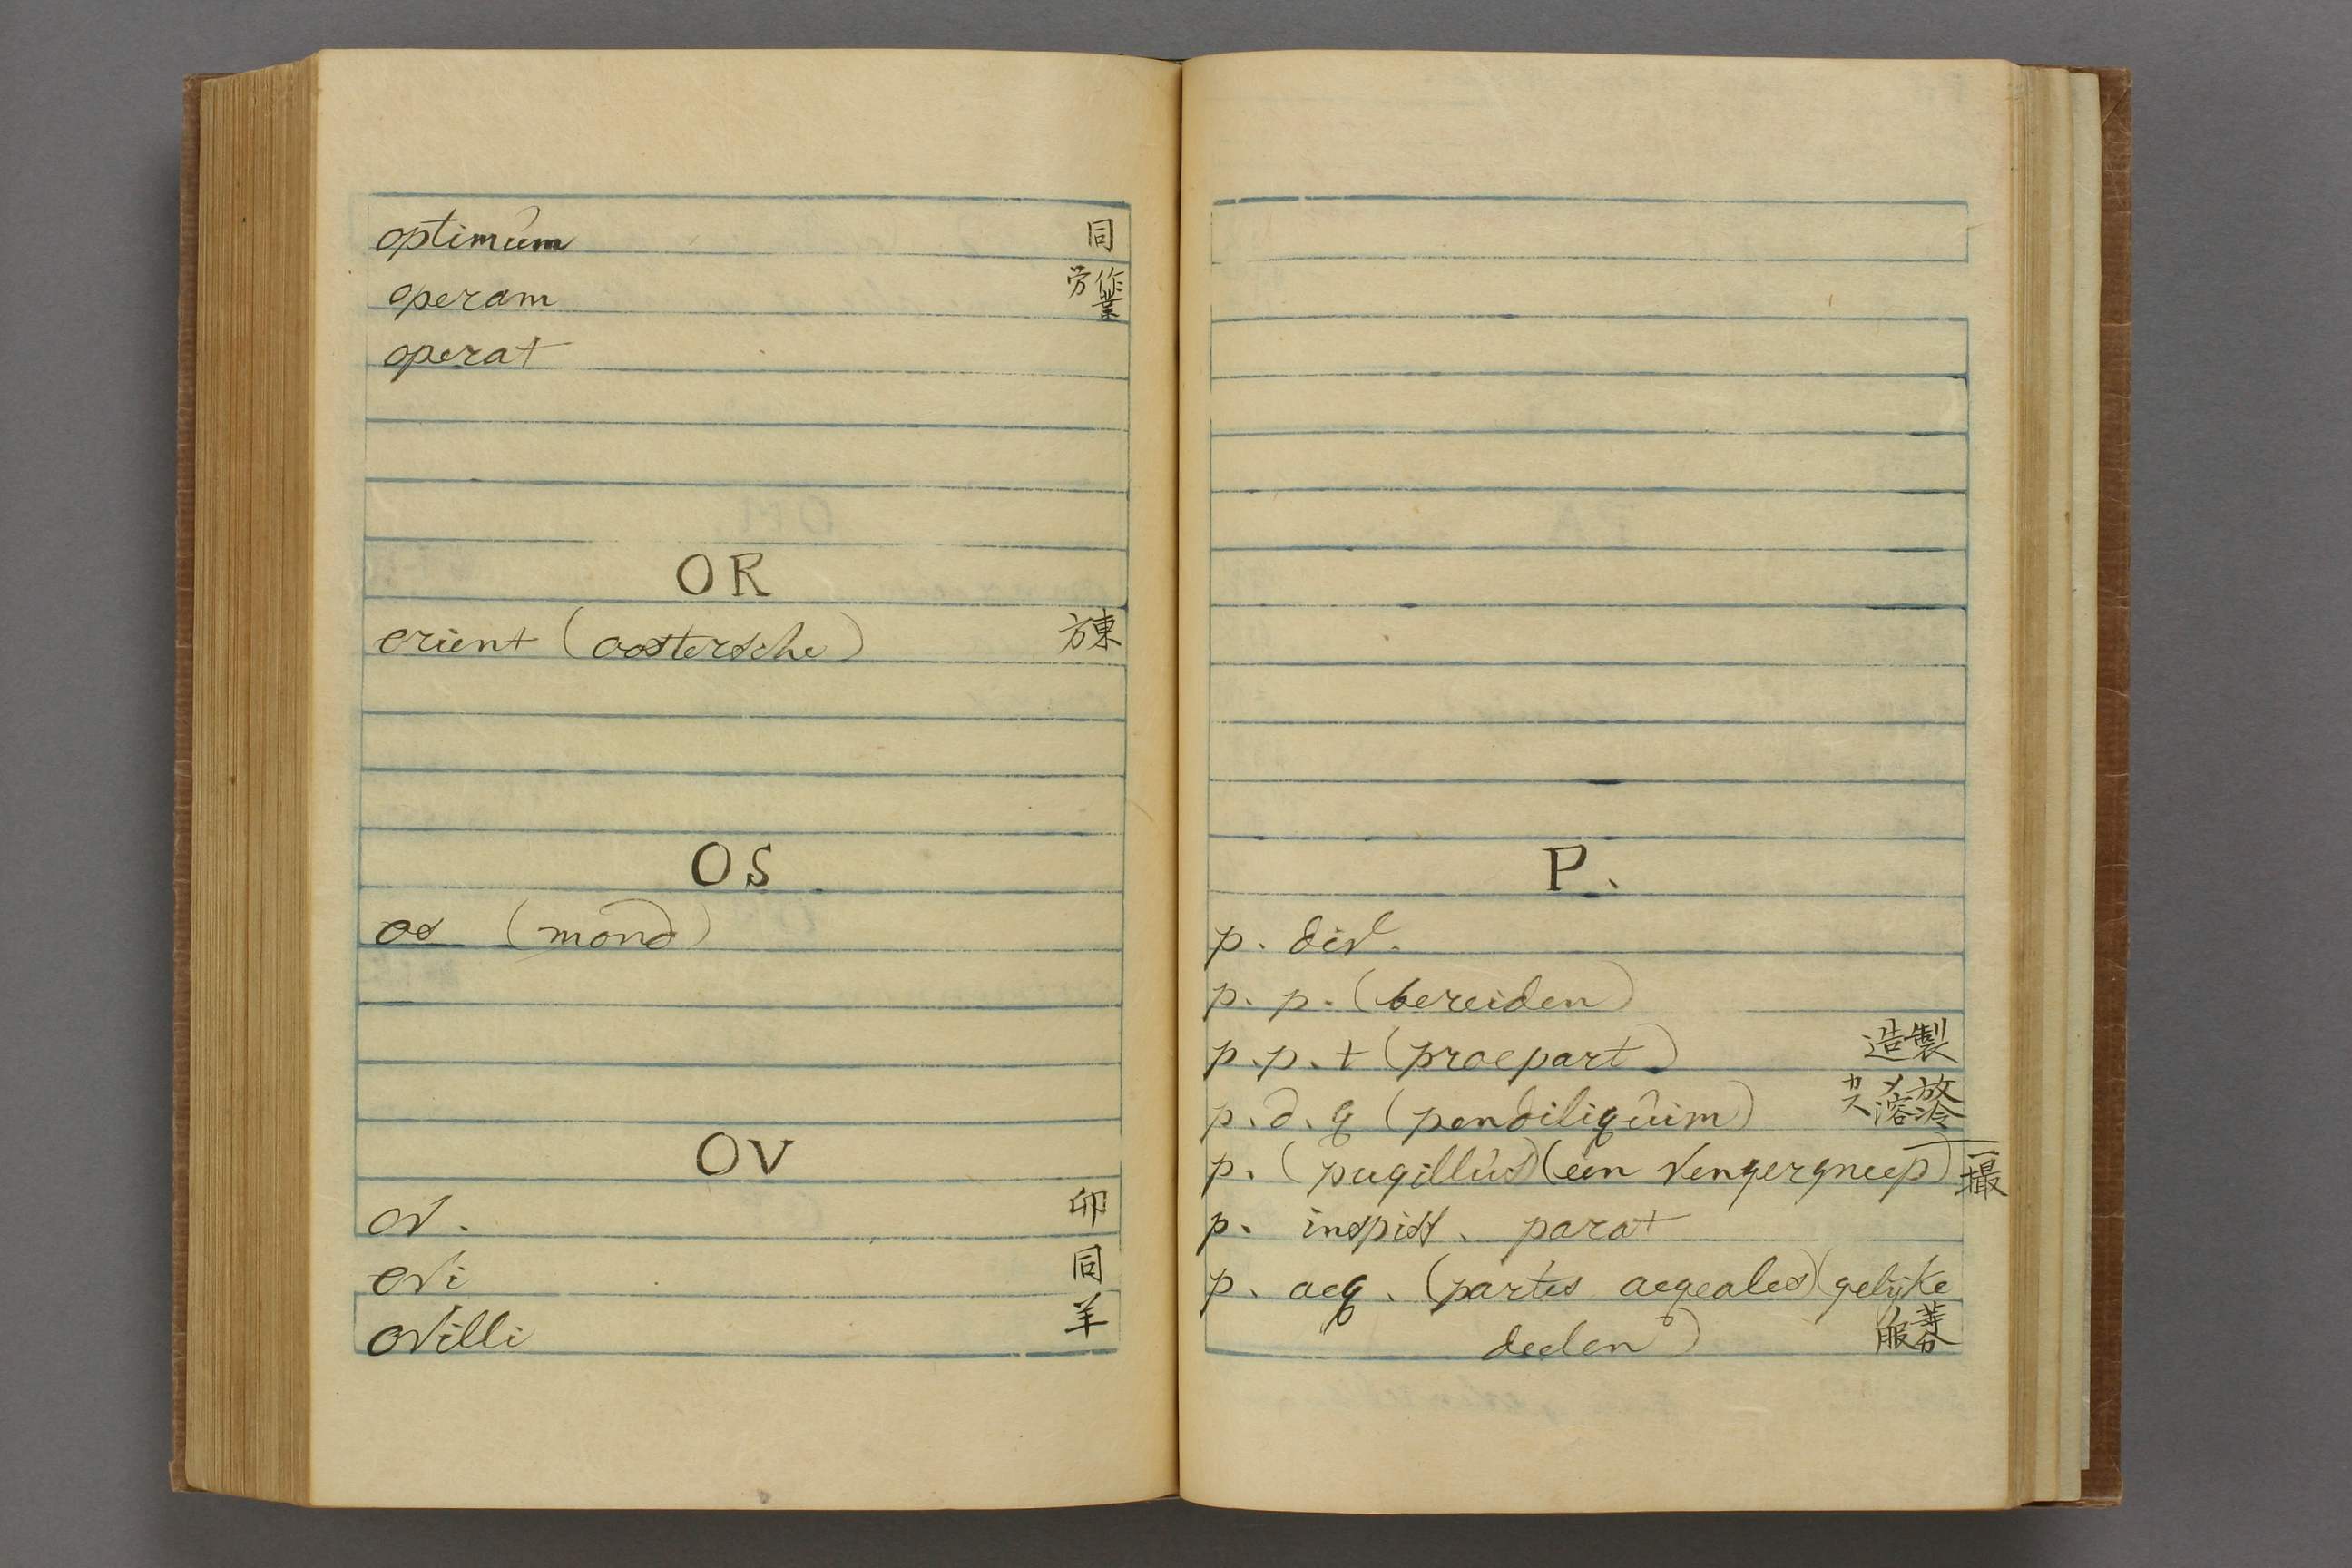 optimûm 同
operam 作業 労
operat
OR
orient (oostersche) 東方
OS
os (mond)
OV
ov. 卵
ovi 同
ovilli 羊
P.
p. div.
p. p. (bereiden)
p. p. t (proepart) 製造
p. d. q (pendiliqûim) 放冷
p. (pugillûs) (een vengergneep) 一撮
p. inspiss. parat
p. aeq. (partes aeqeales) (gelijke
deelen) 等分